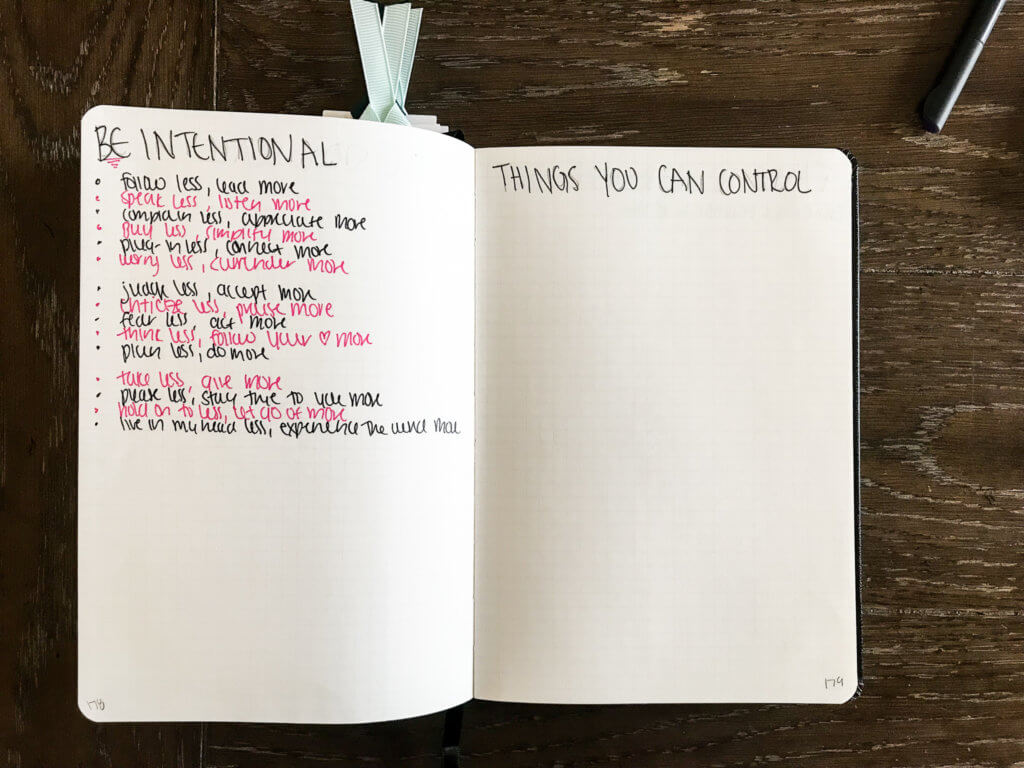 BE INTENTIONAL
• follow less, lead more
• speak less, listen more
• complain less, appreciate more
• buy less, simplify more
• plug-in less, connect more
• worry less, surrender more
• judge less, accept more
• criticize less, praise more
• fear less, act more
• think less, follow your ♡ more
• plan less, do more
• take less, give more
• please less, stay true to you more
• hold on to less, let go of more
• live in my head less, experience the world more
178
THINGS YOU CAN CONTROL
179